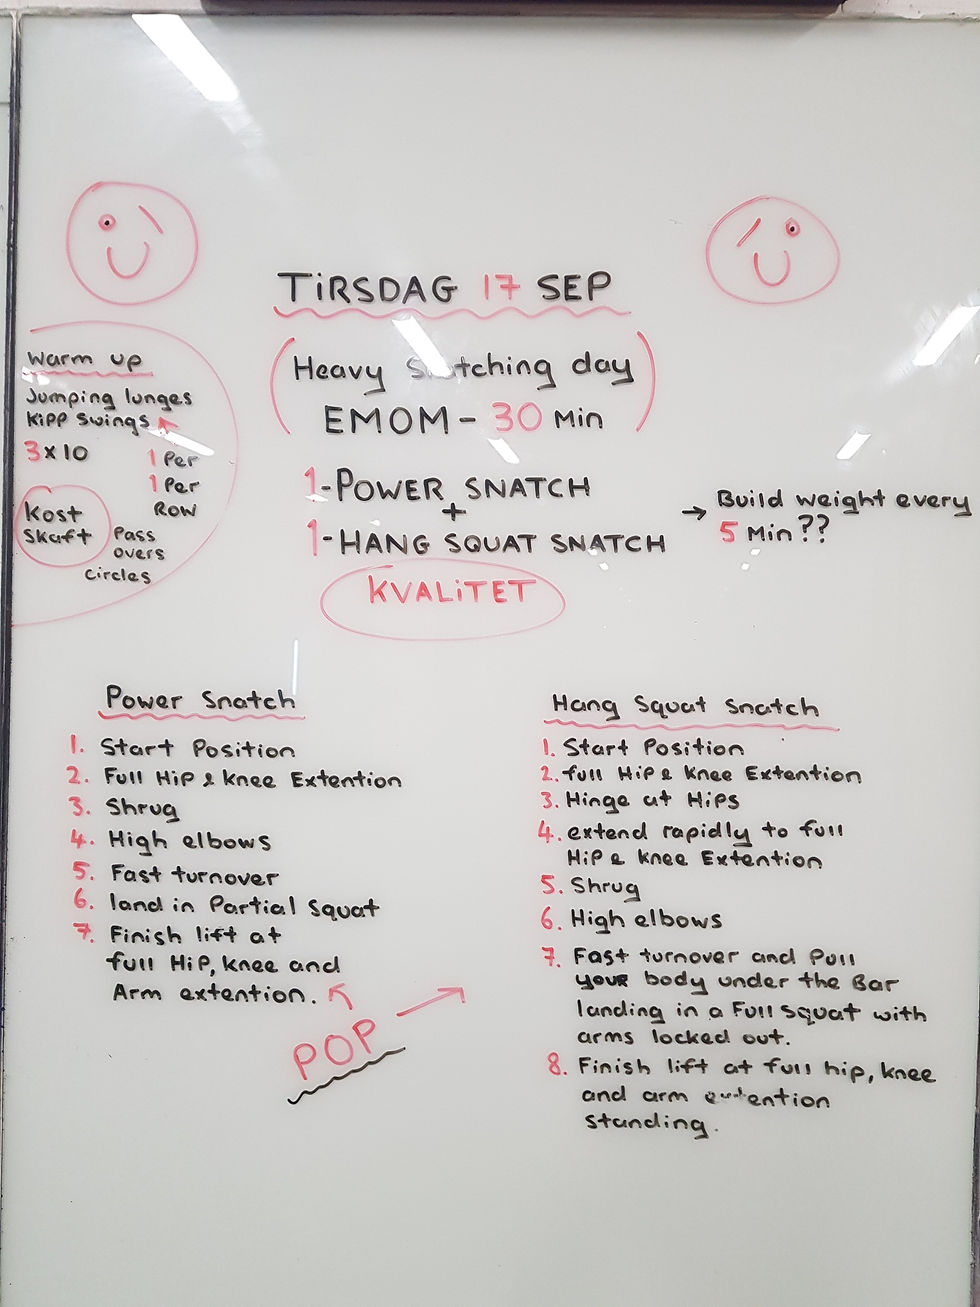 TiRSDAG 17 SEP
Warm up
Jumping lunges
Kipp swings
3x10
1 Per
1 Per
Row
Kost
Skaft
Pass
overs
circles
Heavy day
EMOM - 30 Min
1-POWER SNATCH
+
1-HANG SQUAT SNATCH
KVALiTET
→ Build weight every
5 Min??
Power Snatch
1. Start Position
2. Full Hip & knee Extention
3. Shrug
4. High elbows
5. Fast turnover
6. land in Partial Squat
7. Finish lift at
full Hip, knee and
Arm extention.
POP
Hang Squat Snatch
1. Start Position
2. full Hip & knee Extention
3. Hinge at Hips
4. extend rapidly to full
Hip & knee Extention
5. Shrug
6. High elbows
7. Fast turnover and Pull
your body under the Bar
landing in a Full squat with
arms locked out.
8. Finish lift at full hip, knee
and arm
standing.